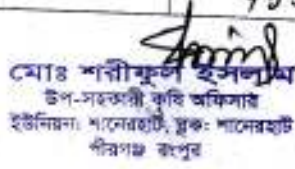 মোঃ শরীফুল ইসলাম
উপ-সহকারী কৃষি অফিসার
ইউনিয়ন: শানেরহাট, ব্লক: শানেরহাট
পীরগঞ্জ রংপুর